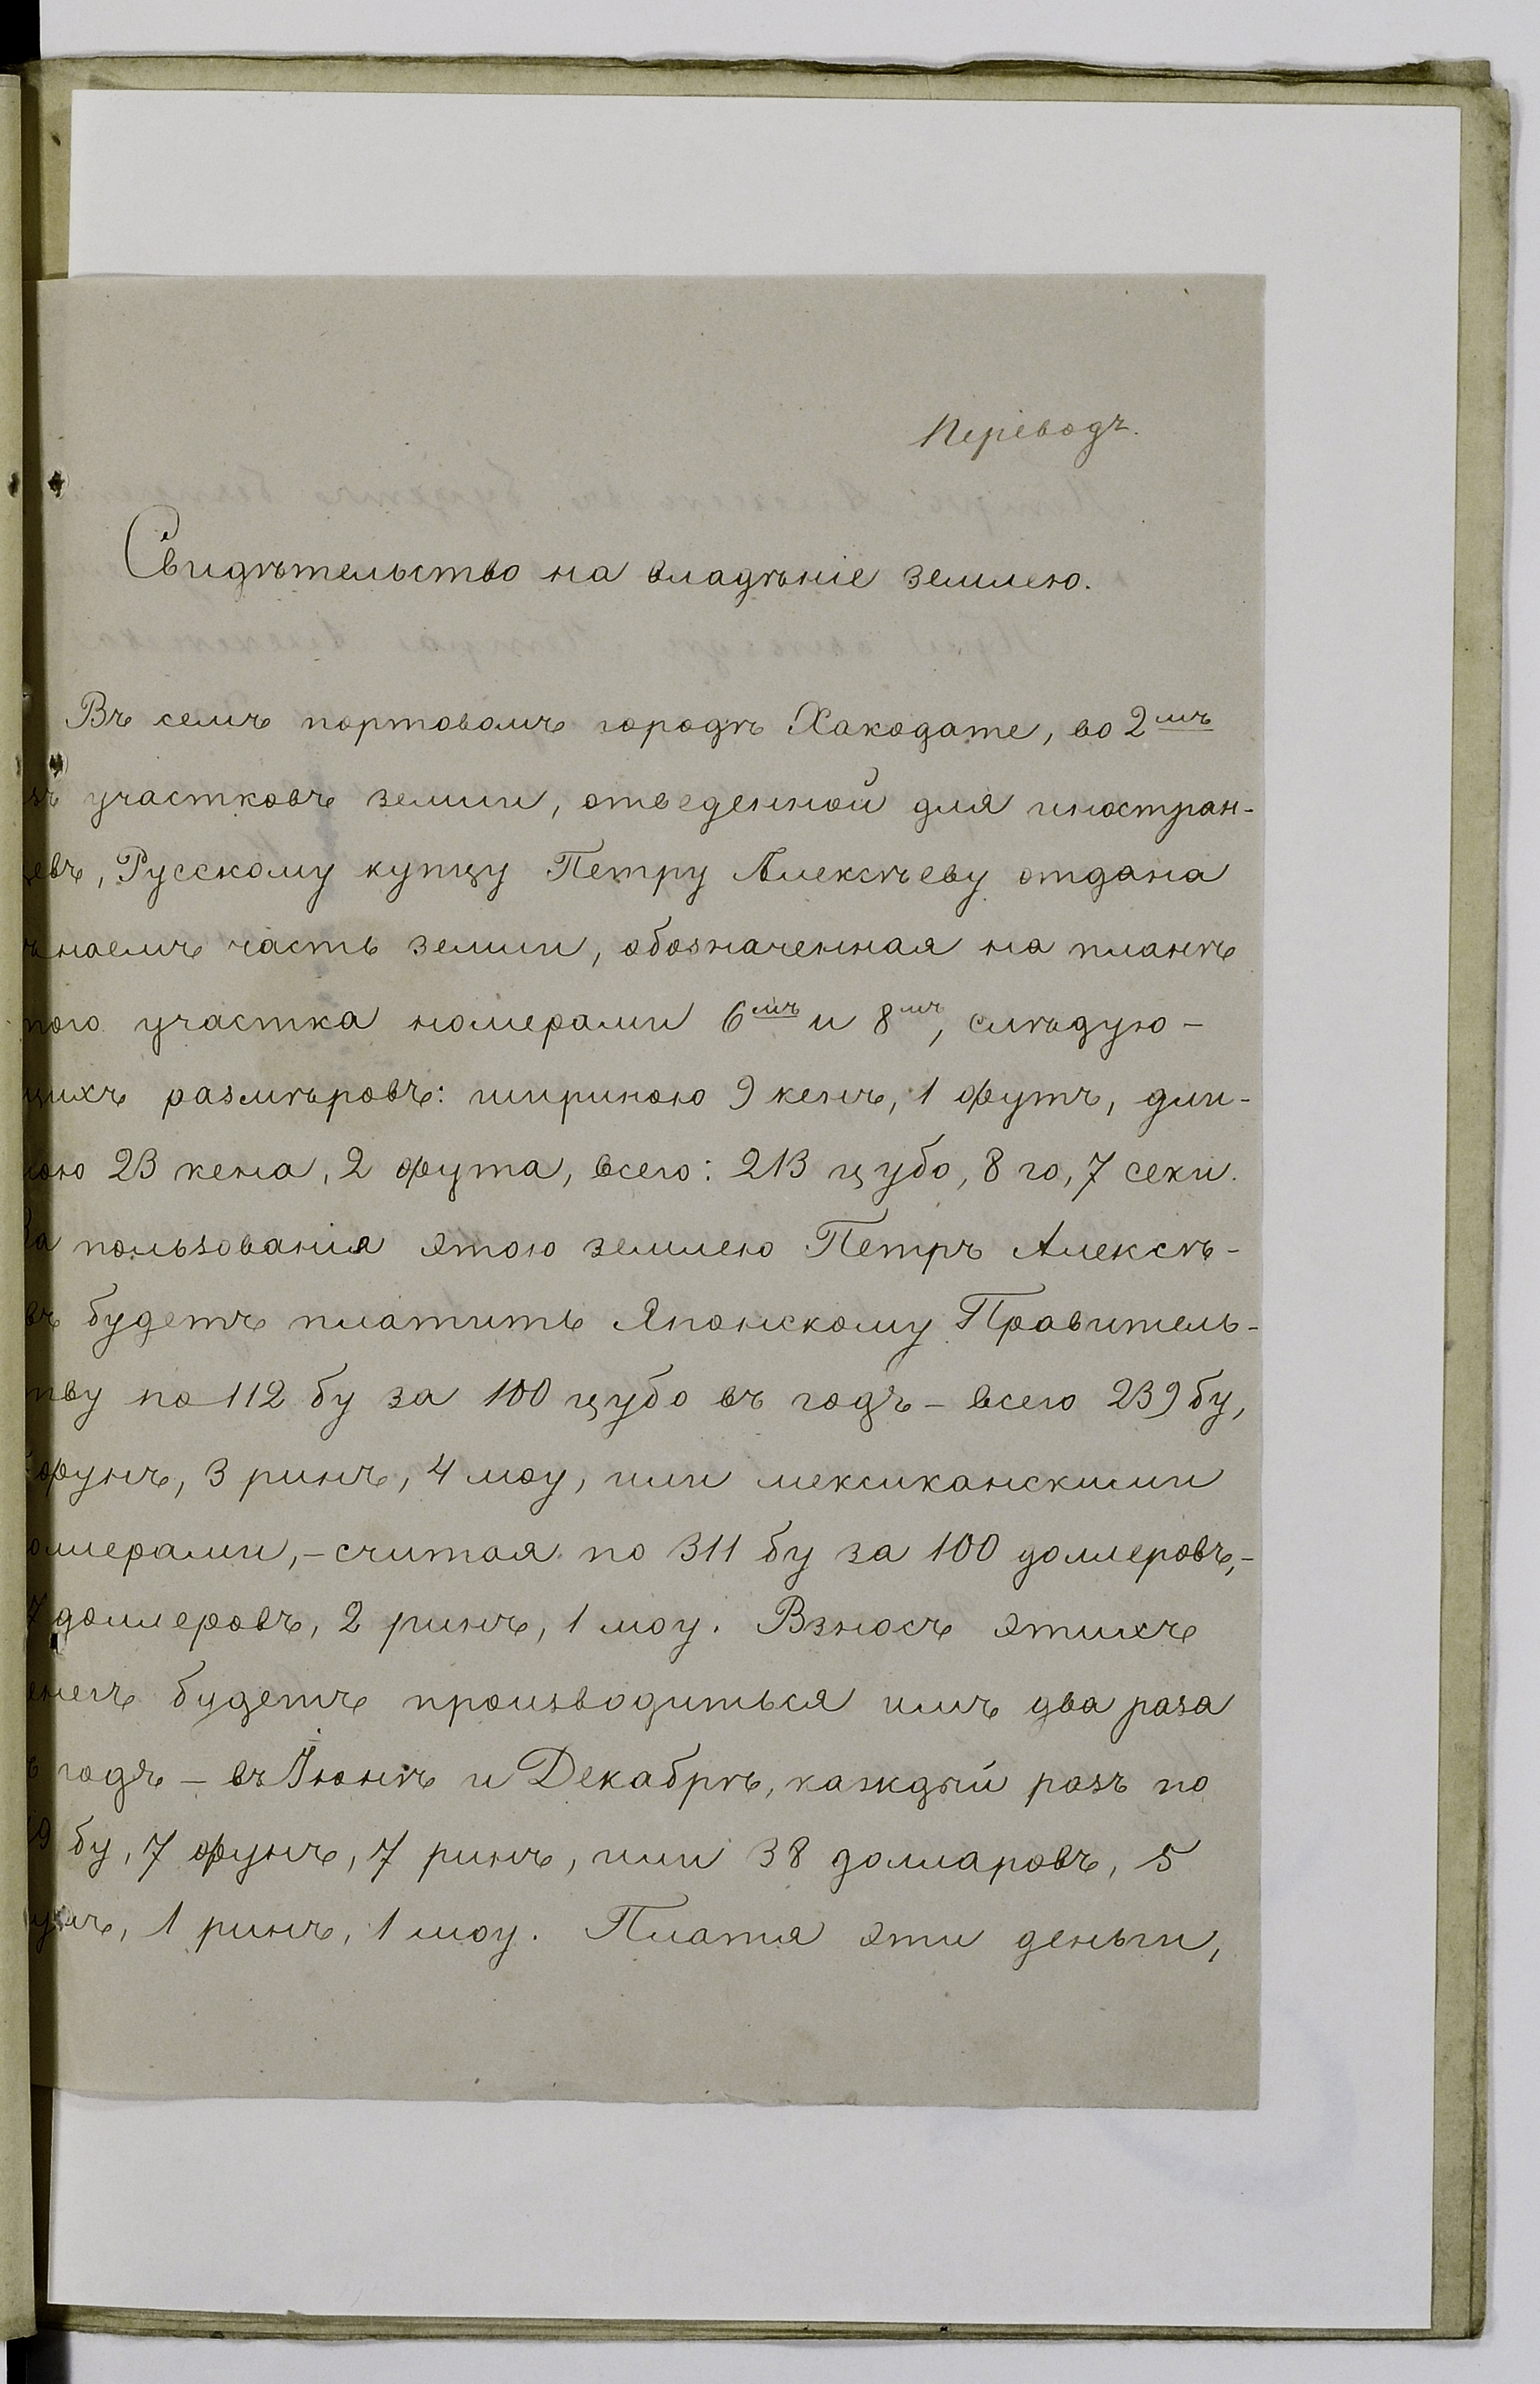 Переводъ.
Свидѣтельство на владѣніе землею.
Въ семъ портовомъ городѣ Хакодате, во 2мъ
зъ участковъ земли, отведенной для иностран-
цевъ, Русскому купцу Петру Алексѣеву отдана
ъ наемъ часть земли, обозначенная на планѣ
того участка номерами 6мъ и 8мъ, слѣдую-
щихъ размѣровъ: шириною 9 кенъ, 1 футъ, дли-
ною 23 кена, 2 фута, всего: 213 цубо, 8 го, 7 секи.
За пользованія этою землею Петръ Алексѣ-
въ будетъ платить Японскому Правитель-
тву по 112 бу за 100 цубо въ годъ - всего 239 бу,
фунъ, 3 ринъ, 4 моу, или мексиканскими
оллерами, - считая по 311 бу за 100 доллеровъ, -
7 доллеровъ, 2 ринъ, 1 моу. Взносъ этихъ
енегъ будетъ производиться имъ два раза
ъ годъ - въ Іюнѣ и Декабрѣ, каждый разъ по
19 бу, 7 фунъ, 7 ринъ, или 38 долларовъ, 5
унъ, 1 ринъ, 1 моу. Платя эти деньги,